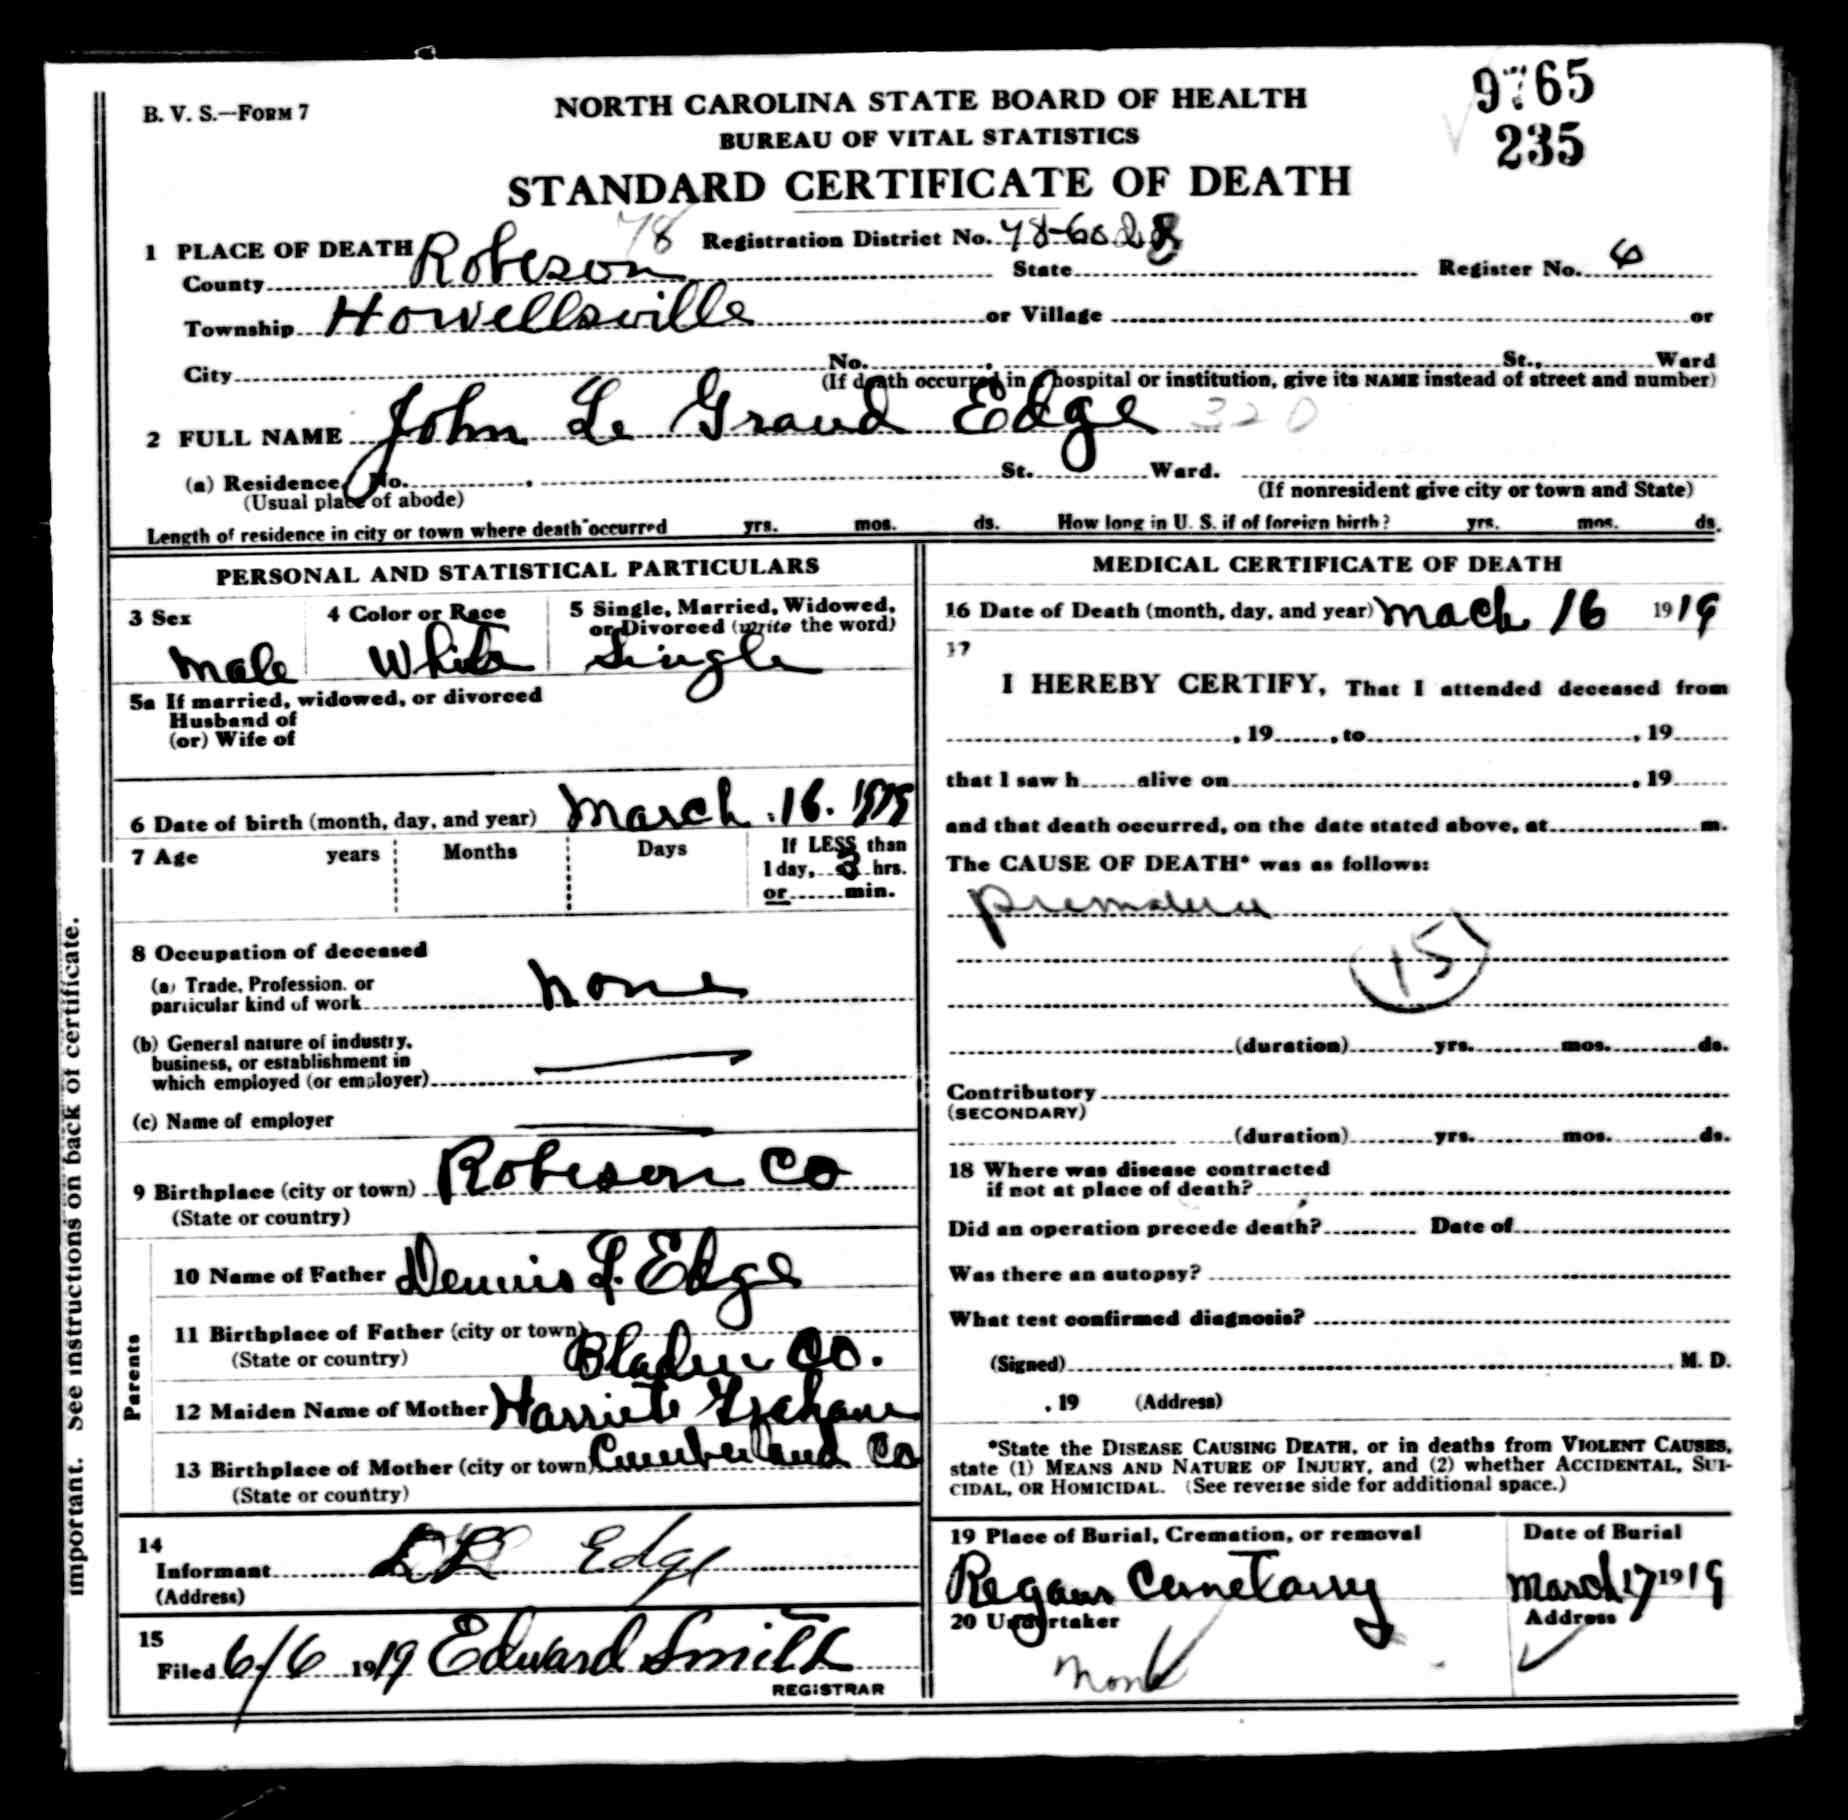 B. V. S.—FORM 7
NORTH CAROLINA STATE BOARD OF HEALTH
BUREAU OF VITAL STATISTICS
9765
235
STANDARD CERTIFICATE OF DEATH
1 PLACE OF DEATH 78 Registration District No. 78-6028
County Robeson State Register No. 6
Township Howellsville or Village or
City No. St., Ward
(If death occurred in a hospital or institution, give its NAME instead of street and number)
2 FULL NAME John Le Grand Edge 320
(a) Residence, No. , St. Ward.
(Usual place of abode) (If nonresident give city or town and State)
Length of residence in city or town where death occurred yrs. mos. ds. How long in U. S. if of foreign birth? yrs. mos. ds.
PERSONAL AND STATISTICAL PARTICULARS
3 Sex 4 Color or Race 5 Single, Married, Widowed,
or Divorced (write the word)
Male White Single
5a If married, widowed, or divorced
Husband of
(or) Wife of
6 Date of birth (month, day, and year) March .16. 1919
7 Age years Months Days If LESS than
1 day, 3 hrs.
or min.
8 Occupation of deceased
(a) Trade, Profession, or
particular kind of work none
(b) General nature of industry,
business, or establishment in
which employed (or employer)
(c) Name of employer
9 Birthplace (city or town) Robeson Co
(State or country)
Parents
10 Name of Father Dennis L. Edge
11 Birthplace of Father (city or town)
(State or country) Bladen Co.
12 Maiden Name of Mother Harriett Graham
13 Birthplace of Mother (city or town) Cumberland Co
(State or country)
14
Informant D L Edge
(Address)
15
Filed 6/6 1919 Edward Smith
REGISTRAR
MEDICAL CERTIFICATE OF DEATH
16 Date of Death (month, day, and year) Mach 16 1919
17
I HEREBY CERTIFY, That I attended deceased from
, 19 , to , 19
that I saw h alive on , 19
and that death occurred, on the date stated above, at m.
The CAUSE OF DEATH* was as follows:
premature
15
(duration) yrs. mos. ds.
Contributory
(SECONDARY)
(duration) yrs. mos. ds.
18 Where was disease contracted
if not at place of death?
Did an operation precede death? Date of
Was there an autopsy?
What test confirmed diagnosis?
(Signed) , M. D.
, 19 (Address)
*State the DISEASE CAUSING DEATH, or in deaths from VIOLENT CAUSES,
state (1) MEANS AND NATURE OF INJURY, and (2) whether ACCIDENTAL, SUI-
CIDAL, OR HOMICIDAL. (See reverse side for additional space.)
19 Place of Burial, Cremation, or removal Date of Burial
Regans Cemetarry March 17 1919
20 Undertaker Address
None
important. See instructions on back of certificate.